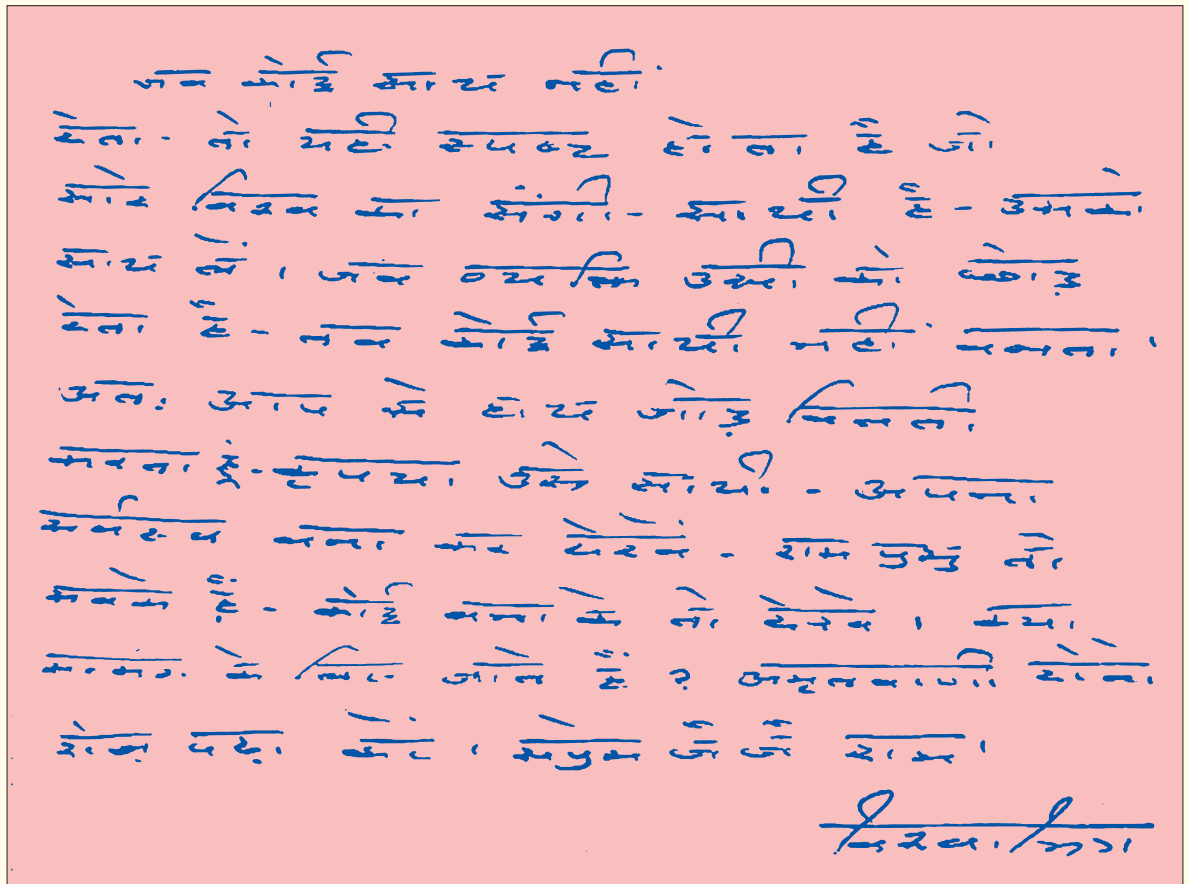 जब कोई साथ नहीं
देता - तो यही स्पष्ट होता है जो
और विश्व का संगी - साथी है - उसके
साथ में । जब व्यक्ति उसी को छोड़
देता है - तब कोई साथी नहीं बनता ।
अतः आप से हाथ जोड़ विनती
करता हूँ - कृपया उस साथी - अपना
सर्वस्व बना कर देखें - राम प्रभु तो
सबके हैं - कोई बना के तो देखे । क्या
के लिए जीते हैं ? अमृतवाणी
रोज़ पढ़ा करें । सप्रेम जै जै राम ।